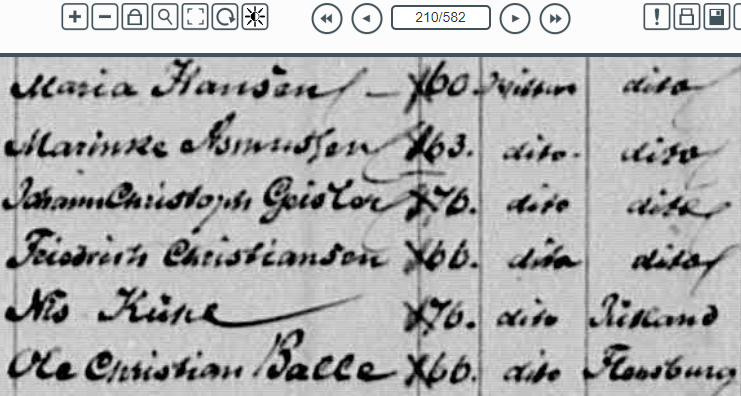 210/582
Maria Hansen 60. dito
Marinke Asmussen 63. dito. dito
Johann Christoph Geisler 76. dito dito
Friedrich Christiansen 66. dito dito
Nis 76. dito Jütland
Ole Christian Balle 66. dito Flensburg